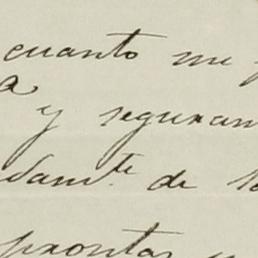 cuanto me
a
y seguran
damte. de
prontas